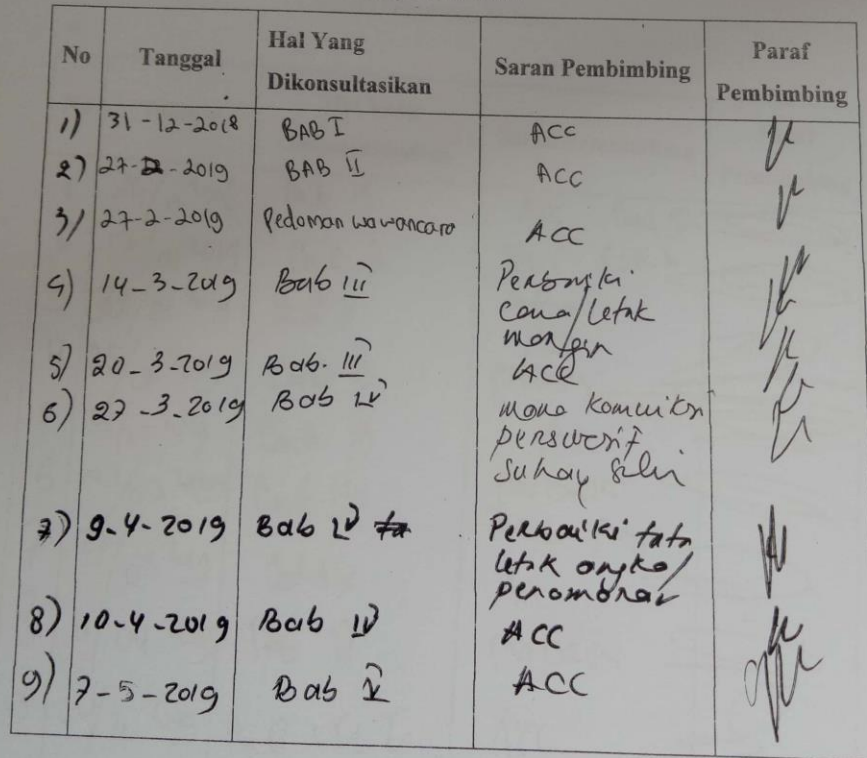 No Tanggal Hal Yang Dikonsultasikan Saran Pembimbing Paraf Pembimbing
1) 31-12-2018 BAB I ACC
2) 27-2-2019 BAB II ACC
3) 27-2-2019 Pedoman wawancara ACC
4) 14-3-2019 Bab III Perbaiki
cara/letak
margin
5) 20-3-2019 Bab. III ACC
6) 27-3-2019 Bab IV mana
persuasif
7) 9-4-2019 Bab IV Perbaiki tata
letak angka/
penomoran
8) 10-4-2019 Bab IV ACC
9) 7-5-2019 Bab V ACC